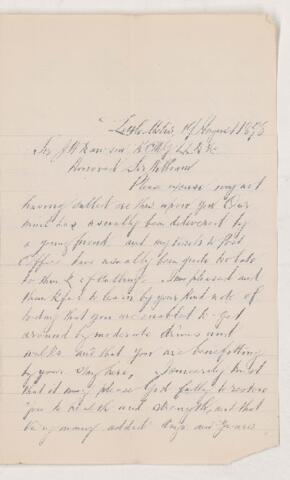 Little Metis, 19 August 1895
Sir J W Dawson K C M G L L D &c
Honored Sir William
Please excuse my not
having called ere this upon you Our
mail has usually been delivered by
a young friend and my visits to Post
Office have usually been quite too late
to think of calling. Am pleased and
thankful to learn by your kind note of
today that you are enabled to get
around by moderate drives and
walks and that you are benefitting
by your stay here, I sincerely trust
that it may please God fully to restore
you to health and strength, and that
many added days and years